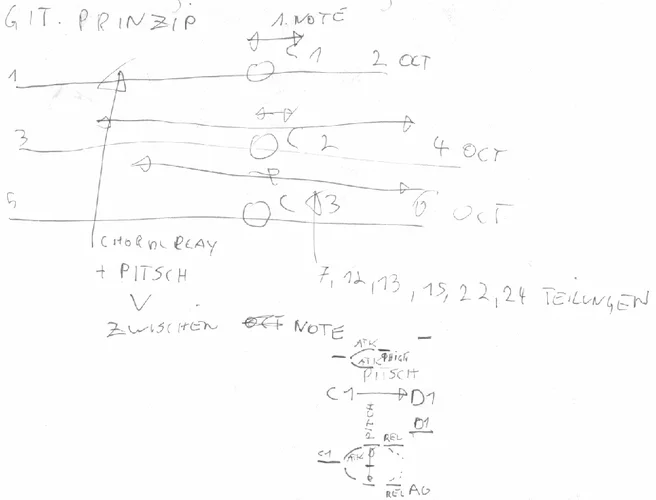 GIT. PRINZIP
1. NOTE
1 C 1 2 OCT
3 C 2 4 OCT
5 C 3 6 OCT
CHORDPLAY
+ PITSCH
7, 12, 13, 15, 22, 24 TEILUNGEN
ZWISCHEN OCT NOTE
ATK
ATK
PITSCH
C1 D1
PITCH
D1
REL
C1 ATK
REL